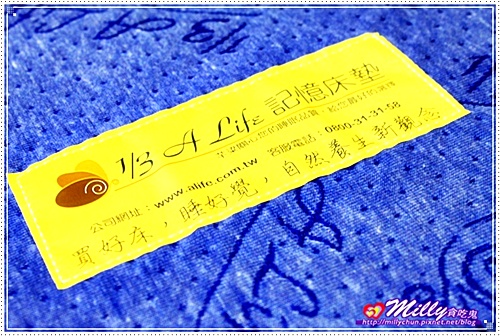 1/3 A Life 記憶床墊
1/3 A Life
公司網址：www.alife.com.tw 客服電話：0800-31-31-58
買好床，睡好覺，自然養生新觀念
Milly貪吃鬼
http://millychun.pixnet.net/blog